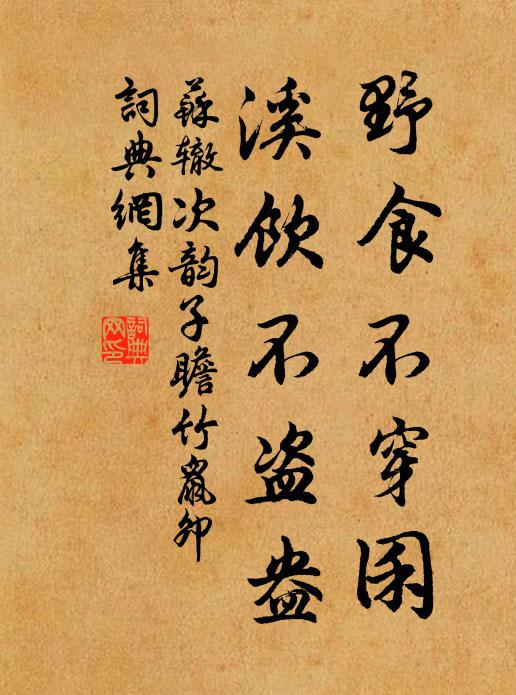 野食不穿囷
溪飲不盗盎
蘇辙次韵子瞻竹鼠卯
詞典網集
詞典网印